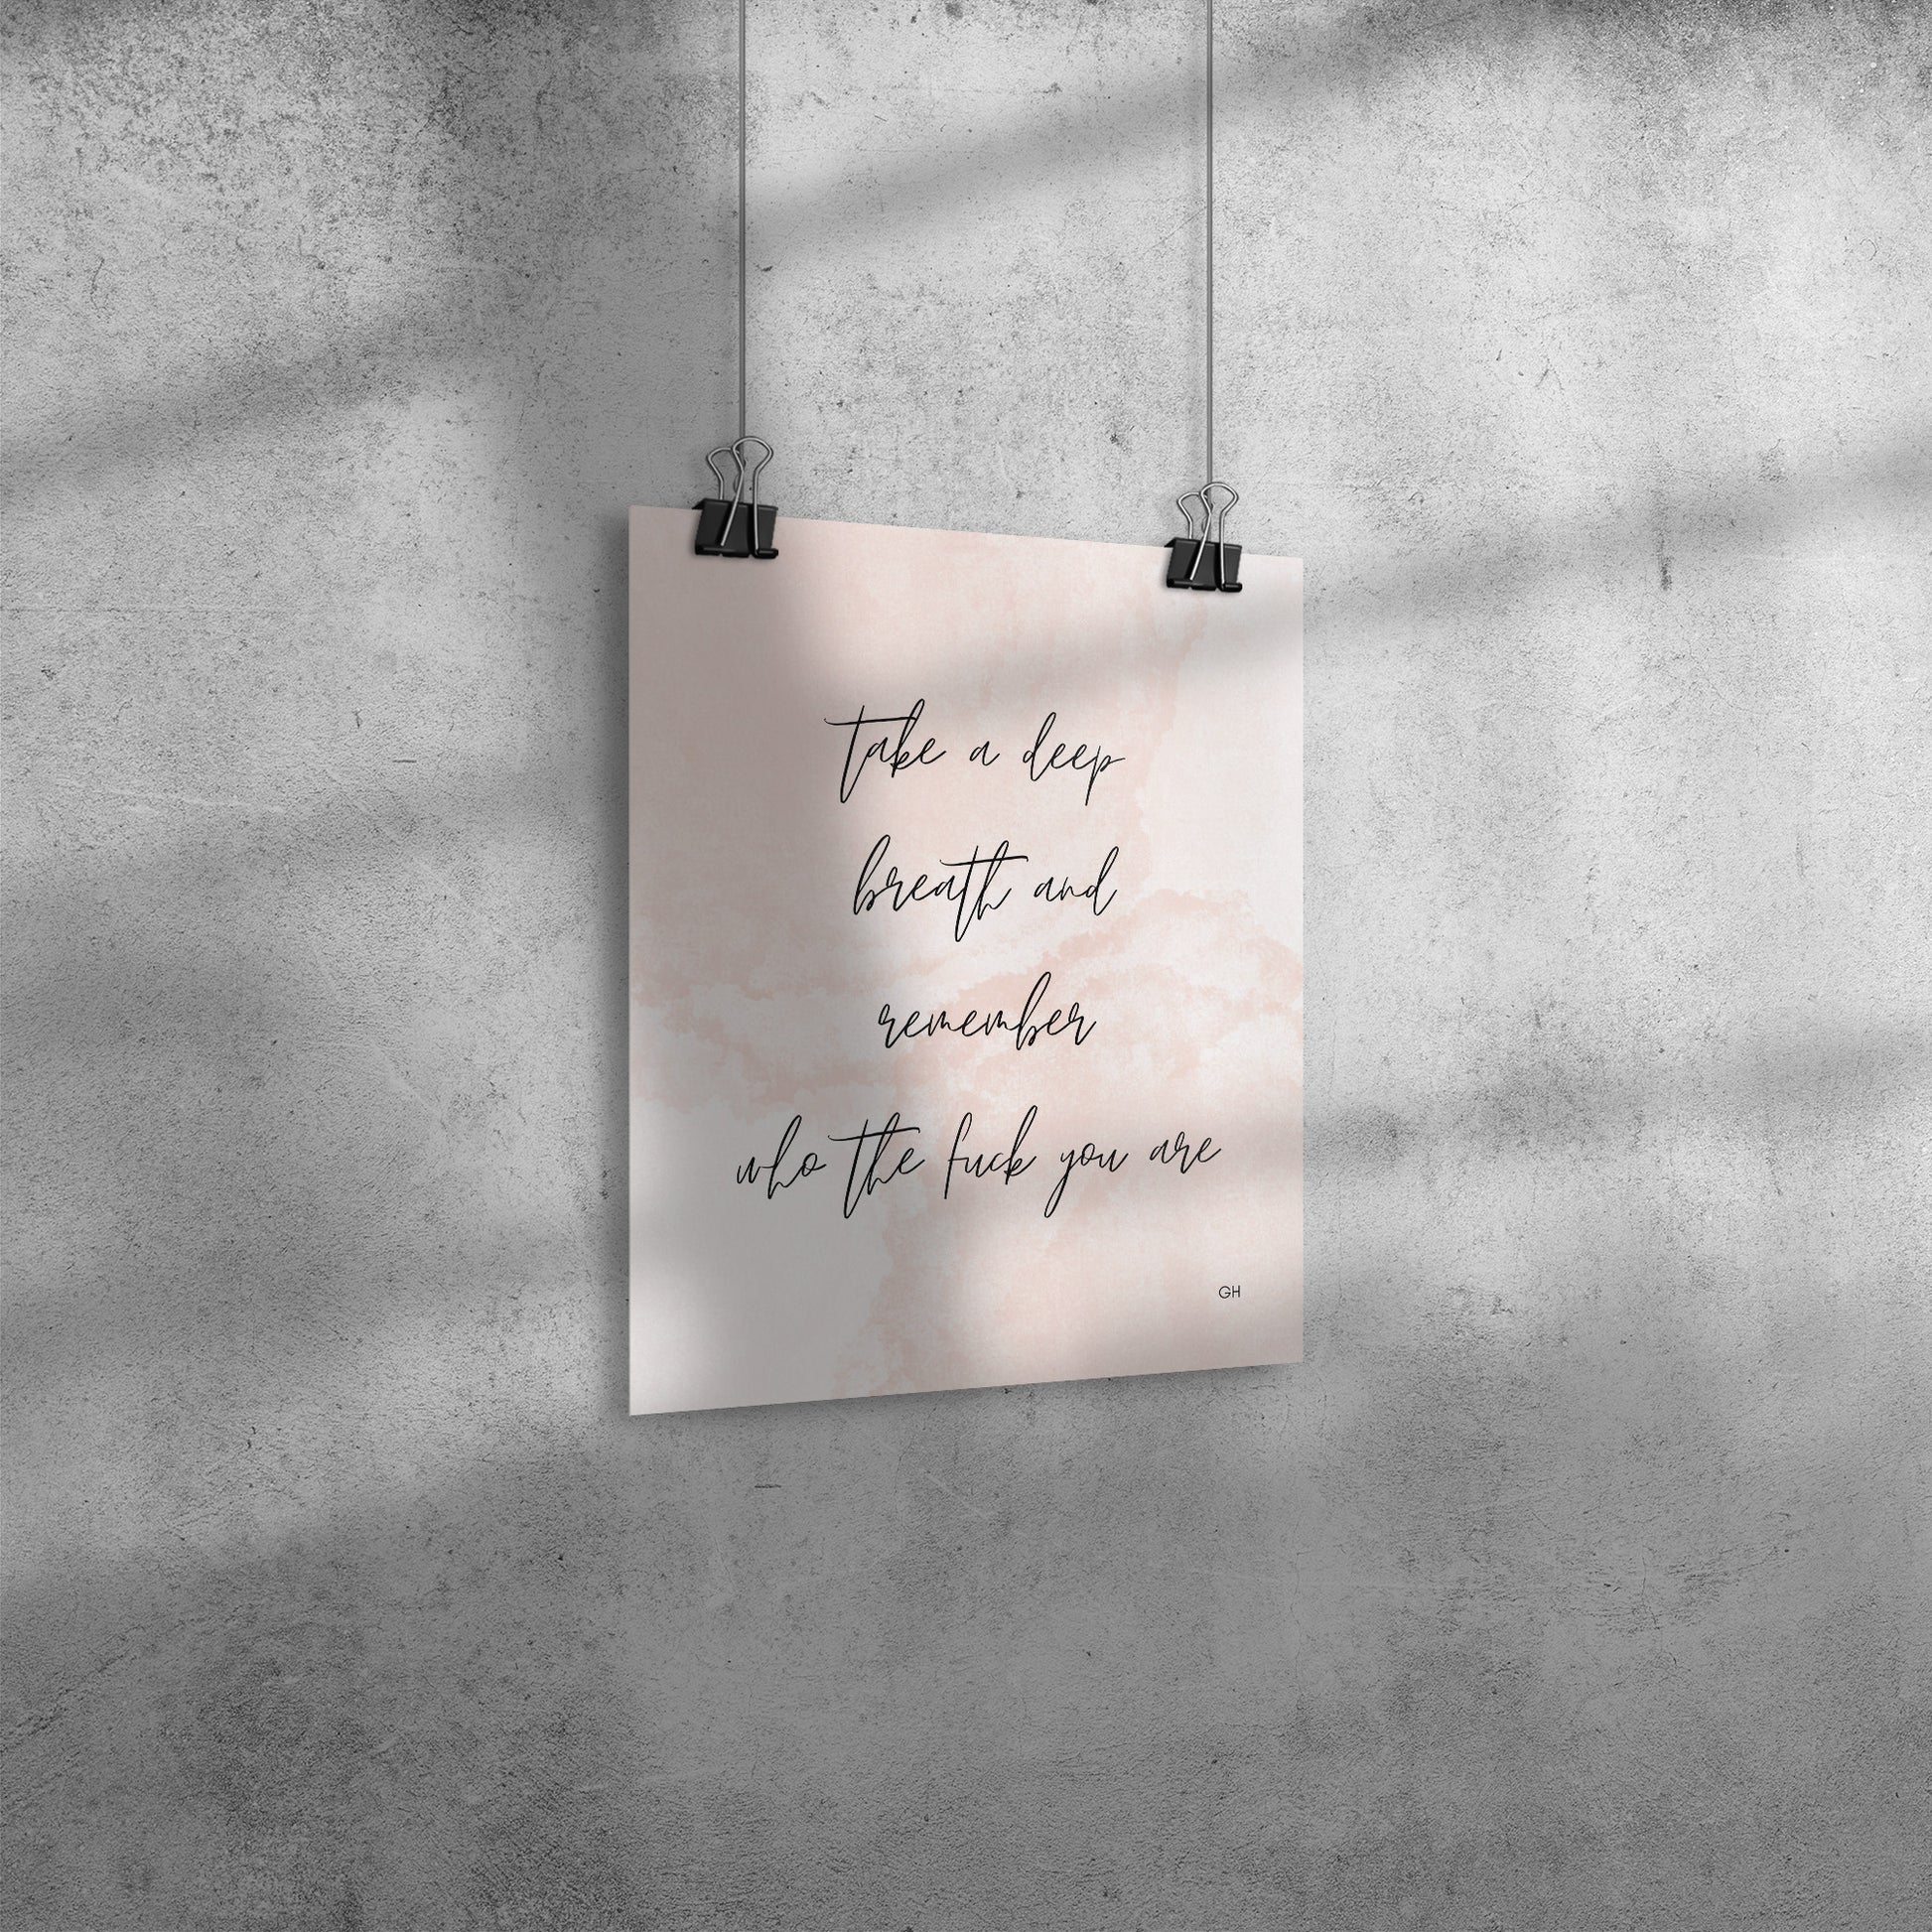 take a deep
breath and
remember
who the fuck you are
GH